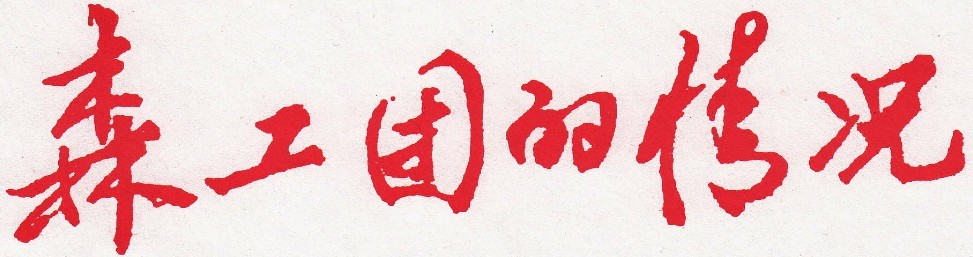 森工固的情况